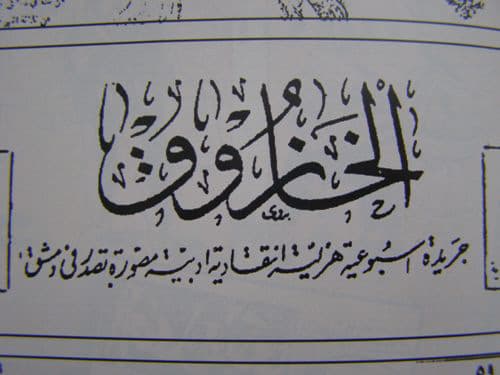 الخازوق
جريدة اسبوعية هزلية انتقادية ادبية مصورة تصدر في دمشق